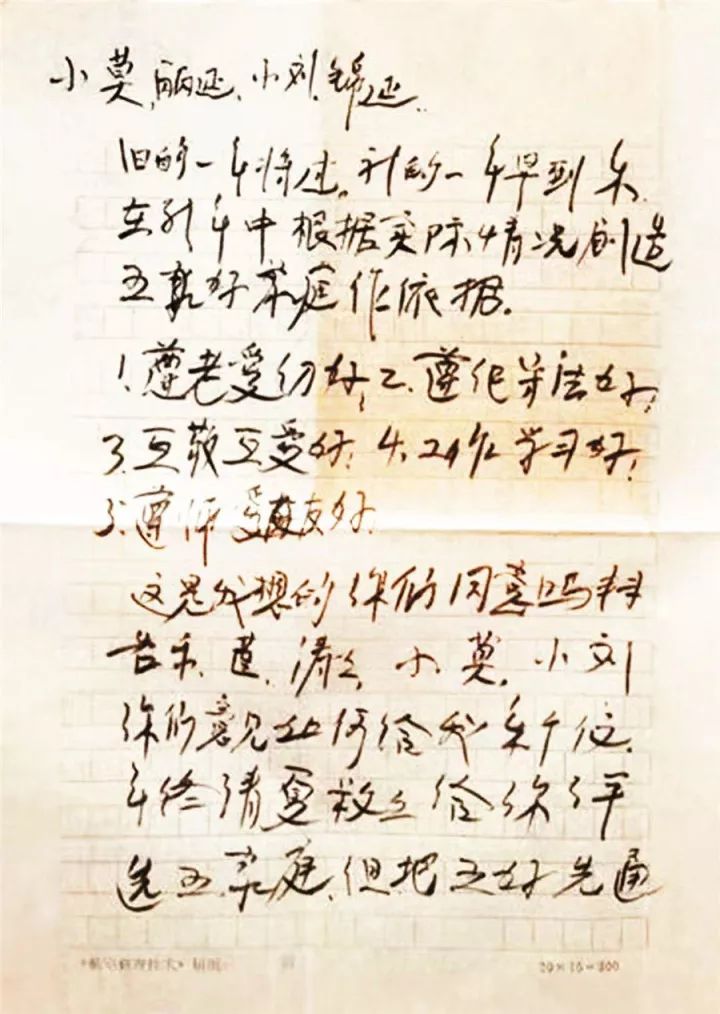 小莫、丽延、小刘、锦延。
旧的一年将过。新的一年早到来.
在新年中根据实际情况创造
五好家庭作依据。
1.尊老爱幼好；2.遵纪守法好；
3.互敬互爱好；4.工作学习好；
5.尊师爱友好。
这是我想的你们同意吗
小莫、小刘
你们意见如何给我来个信.
年终请夏教工给你评
选五家庭,但把五好先通
20×15=300